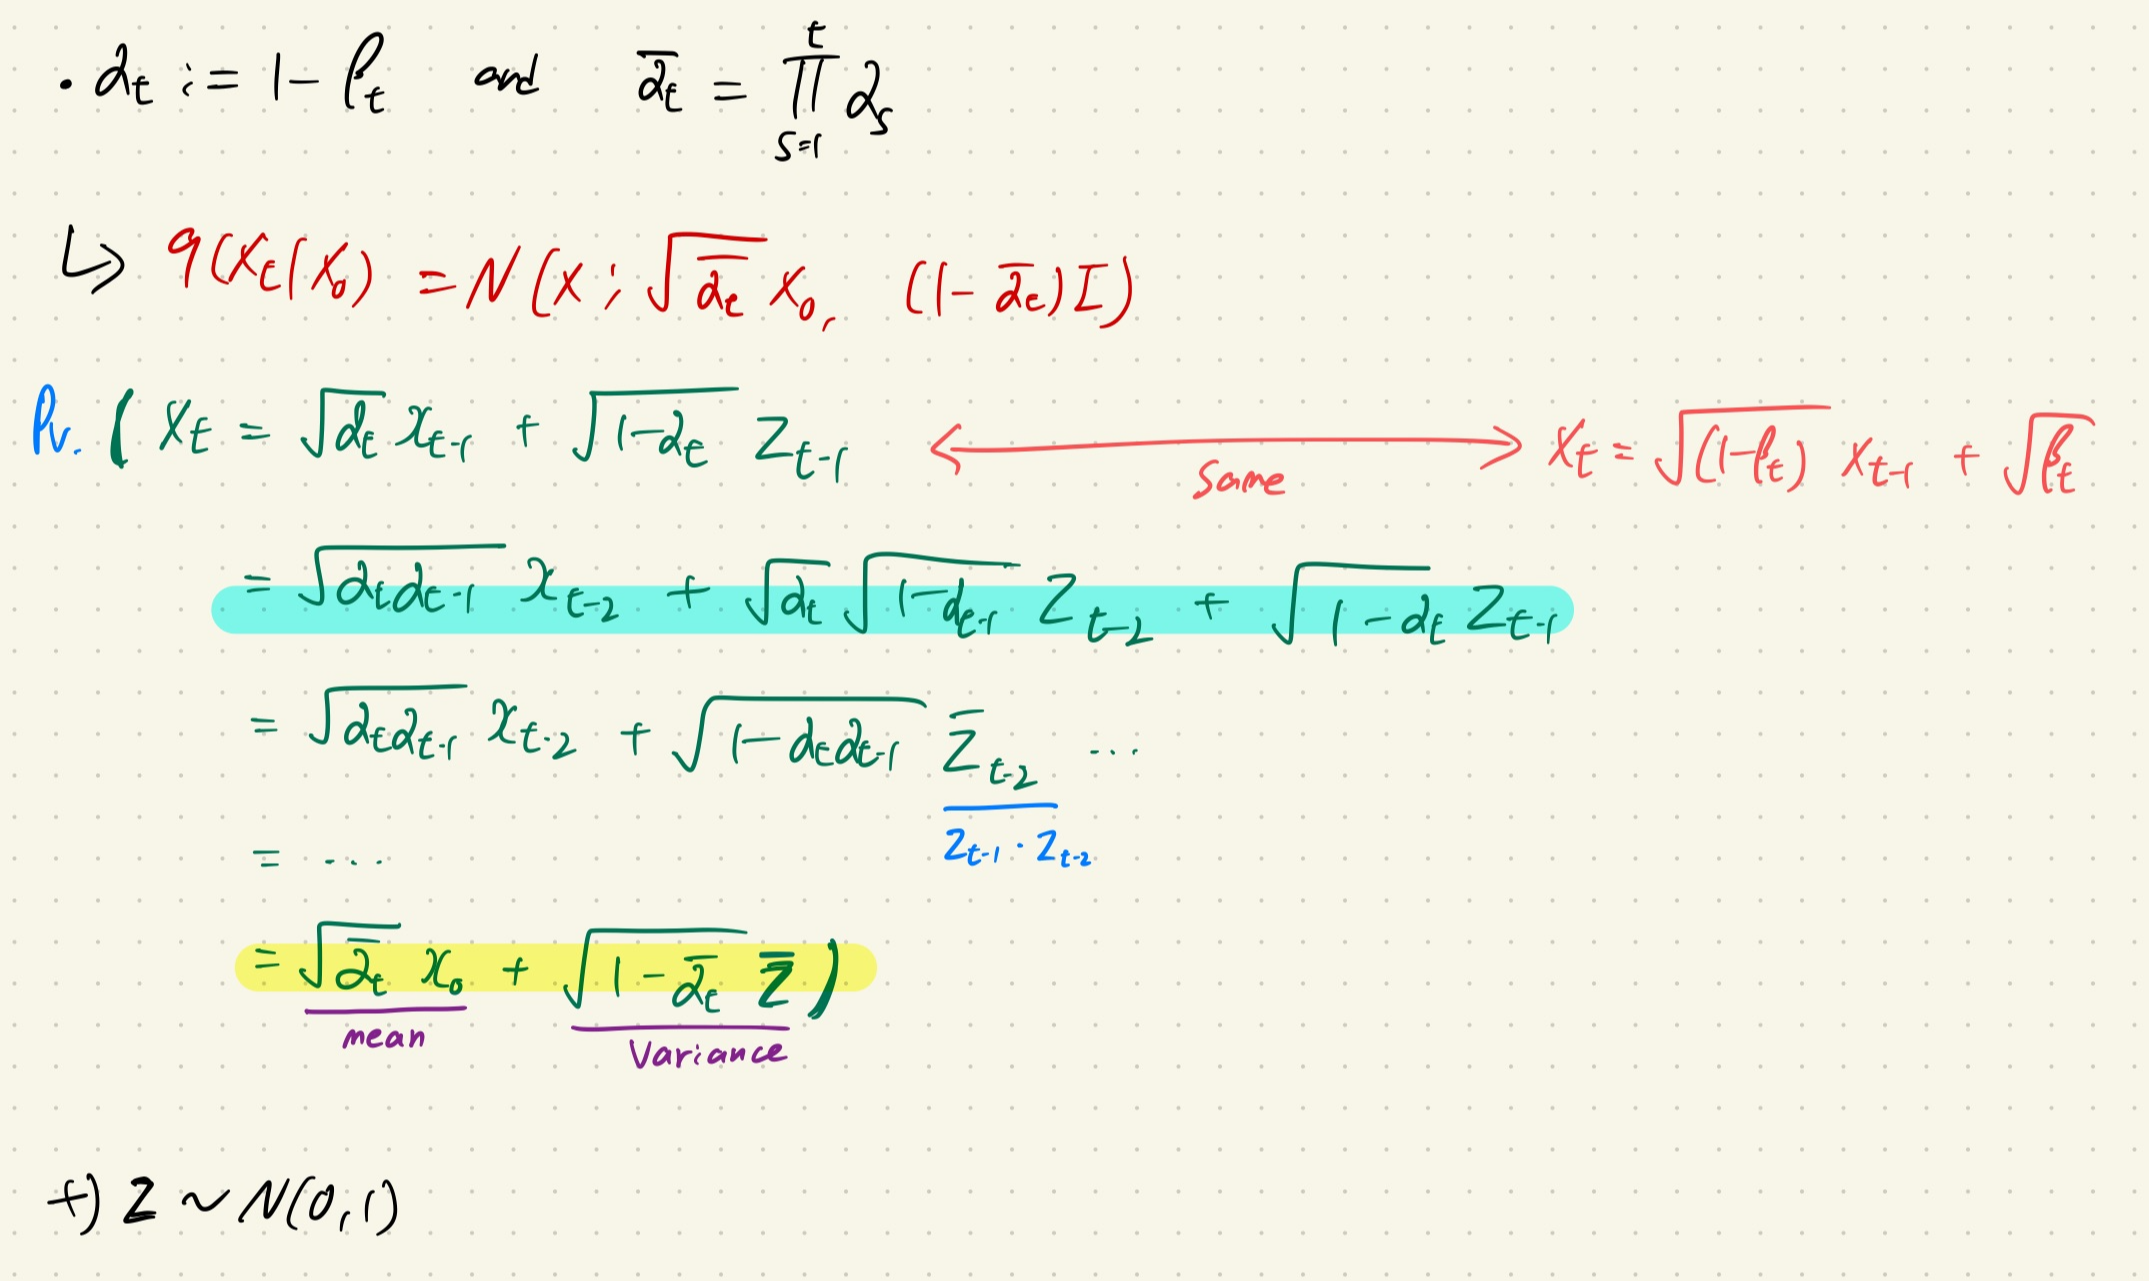 • αₜ := 1 - βₜ and ᾱₜ = ∏ₛ₌₁ᵗ αₛ
↳ q(Xₜ|X₀) = N(X; √ᾱₜ X₀, (1-ᾱₜ)I)
Pr. ( Xₜ = √αₜ xₜ₋₁ + √(1-αₜ) Zₜ₋₁ ⟷ Same Xₜ = √(1-βₜ) Xₜ₋₁ + √βₜ
= √(αₜαₜ₋₁) xₜ₋₂ + √αₜ √(1-αₜ₋₁) Zₜ₋₂ + √(1-αₜ) Zₜ₋₁
= √(αₜαₜ₋₁) xₜ₋₂ + √(1-αₜαₜ₋₁) Z̄ₜ₋₂ ...
= ... Zₜ₋₁ · Zₜ₋₂
= √ᾱₜ x₀ + √(1-ᾱₜ) Z̄ )
mean Variance
+) Z ~ N(0,1)